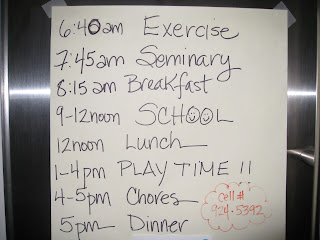 6:40am Exercise
7:45am Seminary
8:15am Breakfast
9-12noon SCHOOL
12noon Lunch
1-4pm PLAY TIME !!
4-5pm Chores
cell #
924-5392
5pm Dinner